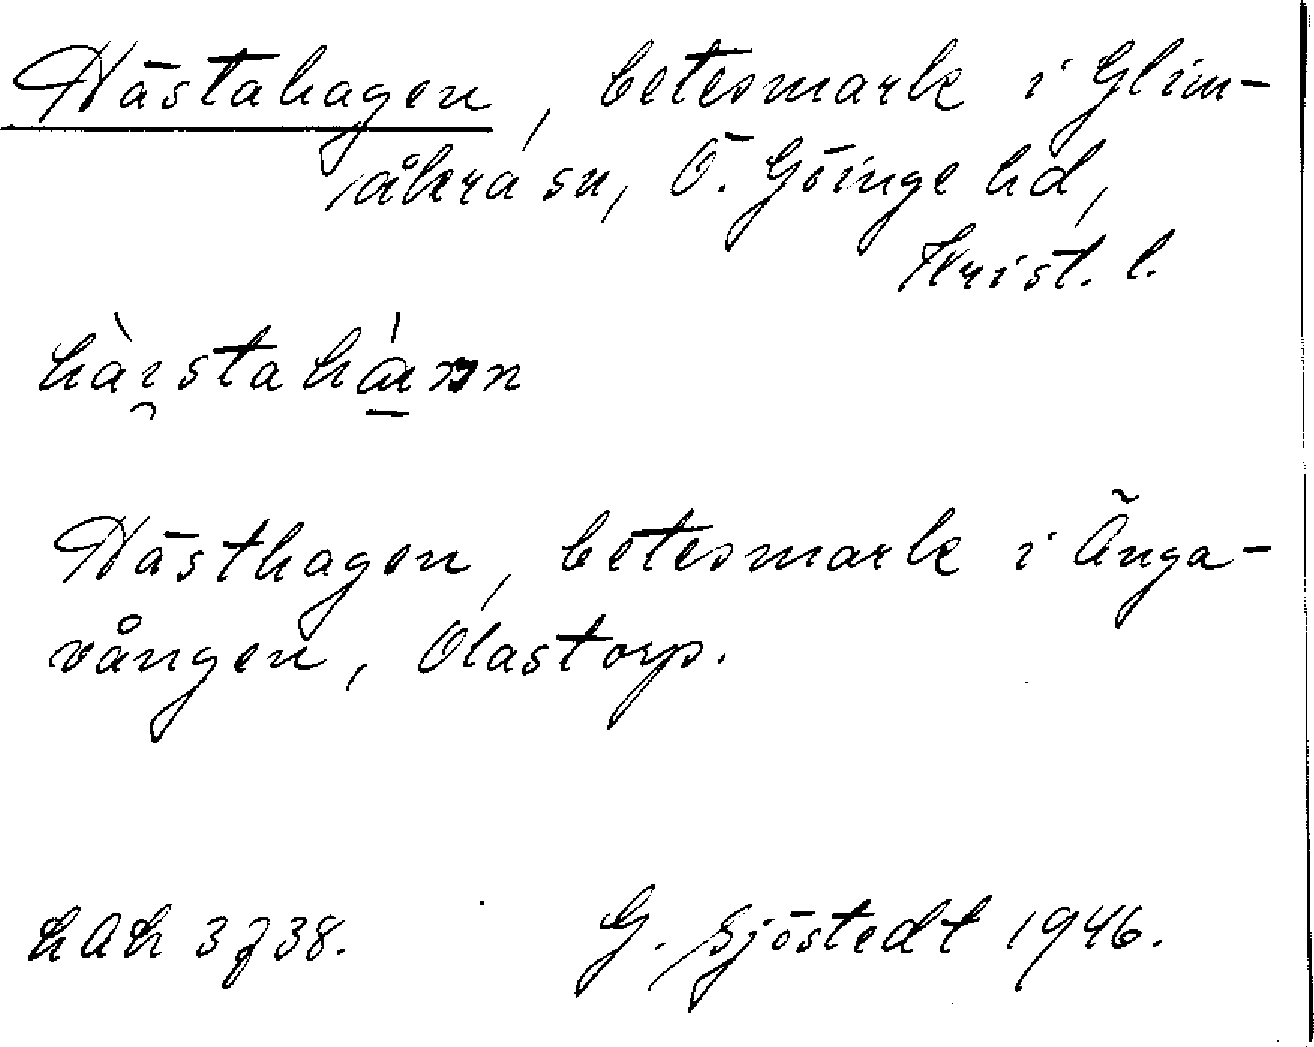 Hästahagen, betesmark i Glim-
åkra sn, Ö. Göinge hd,
Krist. l.
Hästhagen, betesmark i Änga-
vången, Olastorp.
hAh 3f38. G. Sjöstedt 1946.